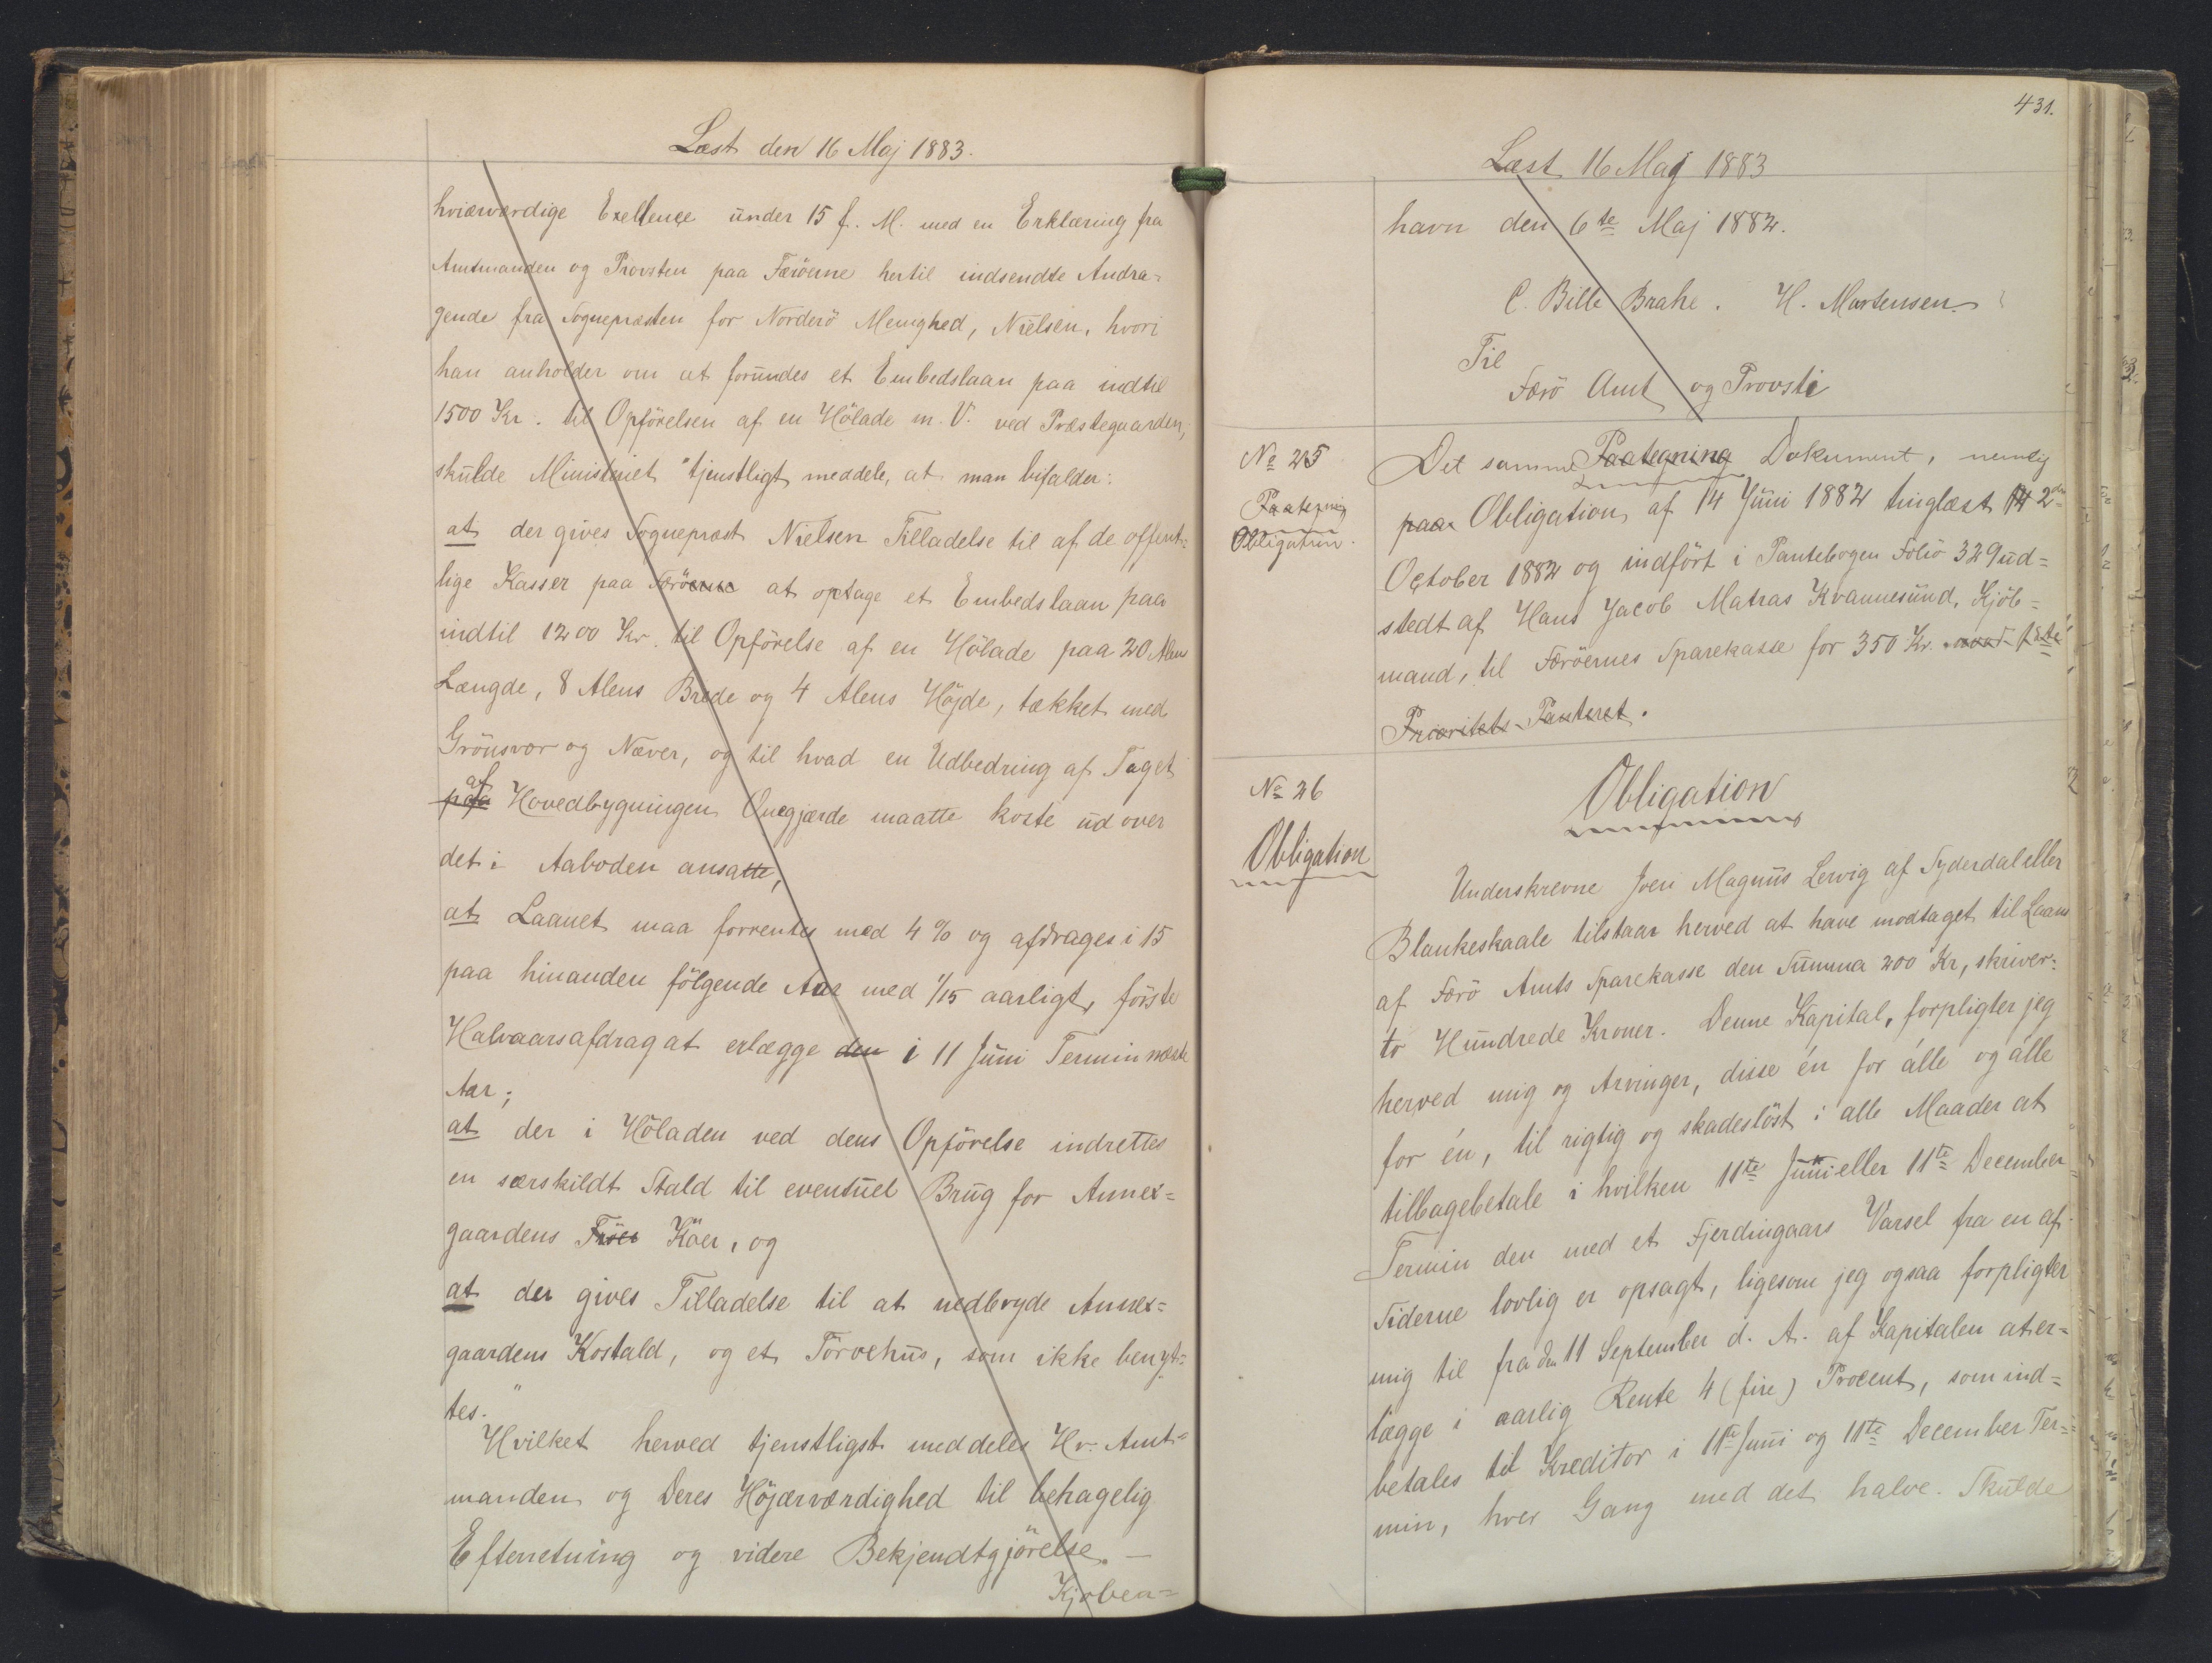 Læst den 16 Maj 1883.
hviærværdige Exellence under 15 f. M. med en Erklæring fra
Amtmanden og Provsten paa Færöerne hertil indsendte Andra=
gende fra Sognepræsten for Norderö Menighed, Nielsen, hvori
han anholder om at forundes et Embedslaan paa indtil
1500 Kr. til Opförelsen af en Hölade m. V. ved Præstegaarden,
skulde Ministeriet tjenstligt meddele, at man bifalder:
at der gives Sognepræst Nielsen Tilladelse til af de offent=
lige Kasser paa Færöerne at optage et Embedslaan paa
indtil 1200 Kr. til Opförelse af en Hölade paa 20 Alen
Længde, 8 Alens Brede og 4 Alens Höjde, tækket med
Grönsvær og Næver, og til hvad en Udbedring af Taget
paa af Hovedbygningen Quegjærde maatte koste ud over
det i Aaboden ansatte,
at Laanet maa forrentes med 4 % og afdrages i 15
paa hinanden fölgende Aar med 1/15 aarligt, förste
Halvaarsafdrag at erlægge den i 11 Juni Termin næste
Aar;
at der i Höladen ved dens Opförelse indrettes
en særskildt Stald til eventuel Brug for Annex=
gaardens Köer, og
at der gives Tilladelse til at nedbryde Annex=
gaardens Kostald, og et Törvehus, som ikke benyt=
tes."
Hvilket herved tjenstligst meddeles Hr. Amt=
manden og Deres Höjærværdighed til behagelig
Efterretning og videre Bekjendtgjörelse. —
Kjøben=
431.
Læst 16 Maj 1883
havn den 6te Maj 1882.
C. Bille Brahe. H. Martensen.
Til
Færö Amt og Provsti
No 25
Paategning
Obligation.
Det samme Paategning Dokument, nemlig
paa Obligation af 14 Juni 1882 tinglæst 14 2den
October 1882 og indfört i Pantebogen Folio 329 ud=
stedt af Hans Jacob Matras Kvannesund, Kjöb=
mand, til Færöernes Sparekasse for 350 Kr. mod 1ste
Prioritets Panteret.
No 26
Obligation
Obligation
Underskrevne Joen Magnus Lervig af Syderdal eller
Blankeskaale tilstaar herved at have modtaget til Laans
af Færö Amts Sparekasse den Summa 200 Kr, skriver:
to Hundrede Kroner. Denne Kapital, forpligter jeg
herved mig og Arvinger, disse én for álle og álle
for én, til rigtig og skadeslöst i alle Maader at
tilbagebetale i hvilken 11te Juni eller 11te December
Termin den med et Fjerdingaars Varsel fra en af
Siderne lovlig er opsagt, ligesom jeg ogsaa forpligter
mig til fra den 11 September d. A. af Kapitalen at er=
lægge i aarlig Rente 4 (fire) Procent, som ind=
betales til Kreditor i 11te Juni og 11te December Ter=
min, hver Gang med det halve. Skulde